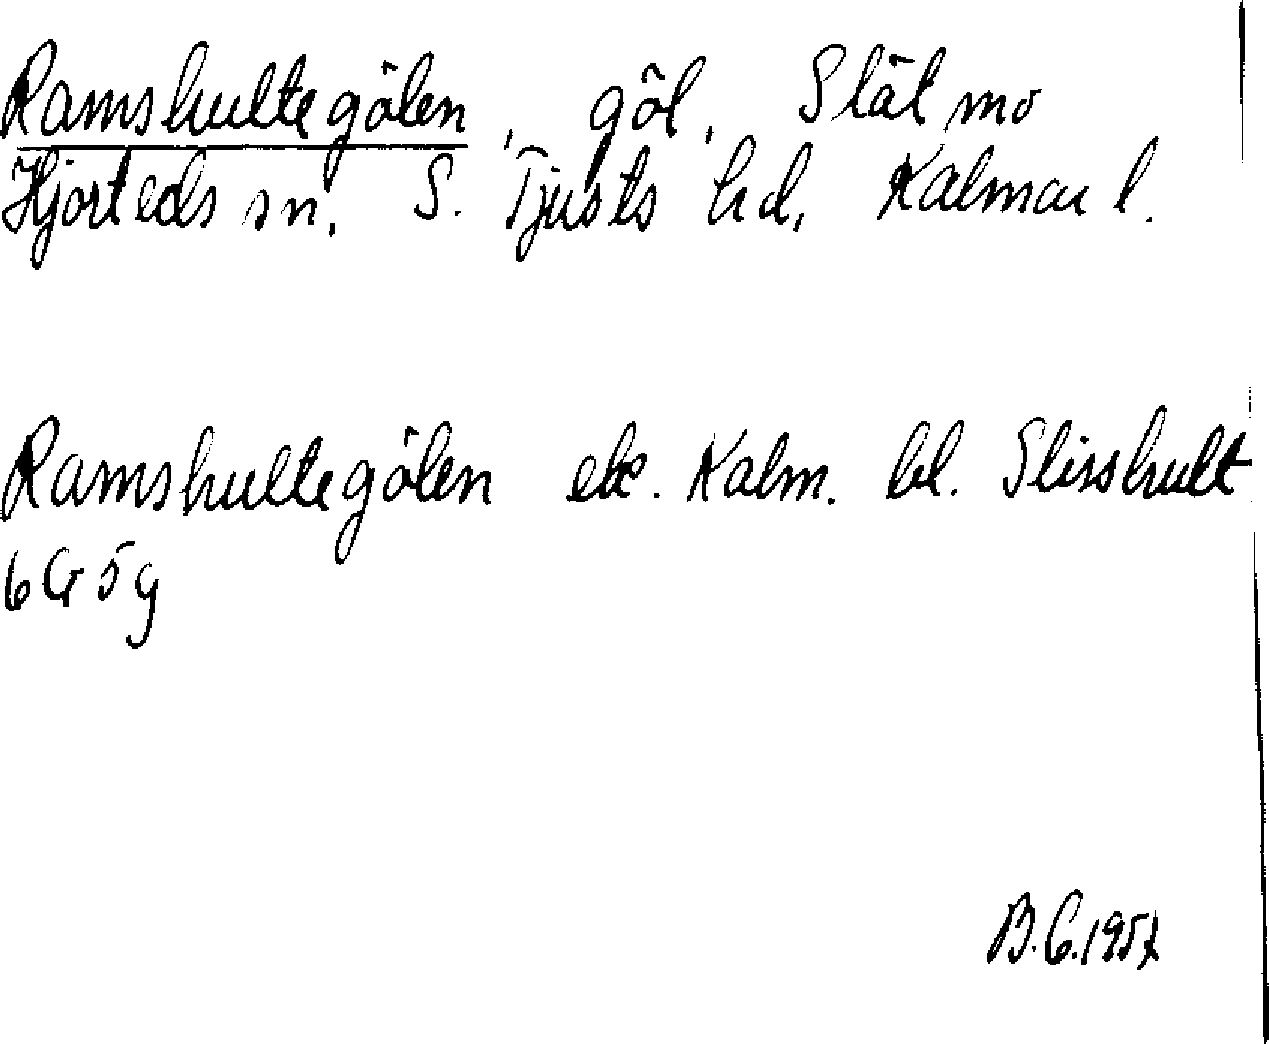 Ramshultegölen, göl, Slätmo
Hjorteds sn, S. Tjusts hd, Kalmar l.
Ramshultegölen ek. Kalm. bl. Slisshult
6G 5g
B.C. 1957